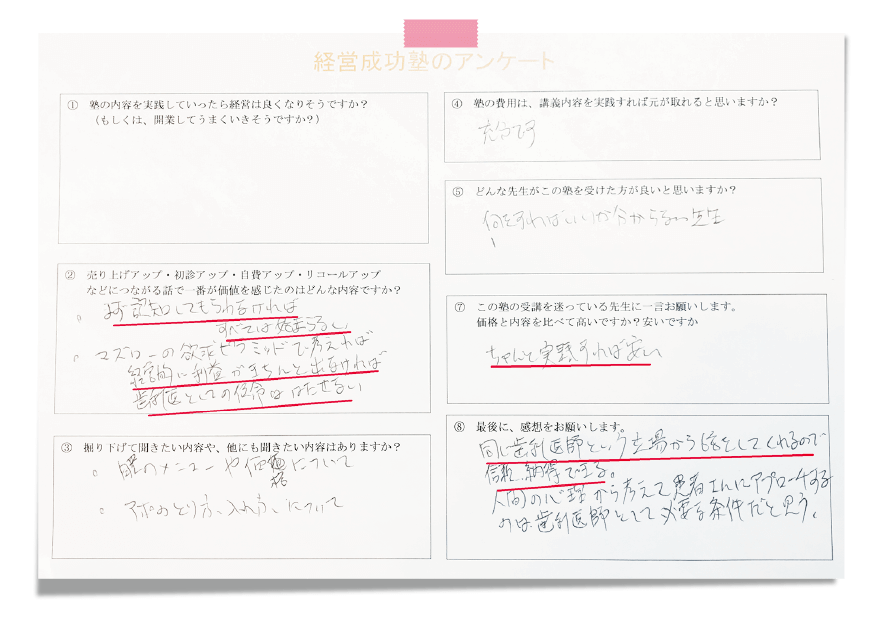 経営成功塾のアンケート
① 塾の内容を実践していったら経営は良くなりそうですか？
（もしくは、開業してうまくいきそうですか？）
② 売り上げアップ・初診アップ・自費アップ・リコールアップ
などにつながる話で一番が価値を感じたのはどんな内容ですか？
。まず認知してもらわなければ
すべては始まらない
。マズローの欲求ピラミッドで考えれば
経営的に利益がきちんと出なければ
歯科医としての使命は はたせない
③ 掘り下げて聞きたい内容や、他にも聞きたい内容はありますか？
。のメニューや価格について
。アポのとり方、入れ方について
④ 塾の費用は、講義内容を実践すれば元が取れると思いますか？
充分です
⑤ どんな先生がこの塾を受けた方が良いと思いますか？
何をすればいいか分からない先生
⑦ この塾の受講を迷っている先生に一言お願いします。
価格と内容を比べて高いですか？安いですか
ちゃんと実践すれば安い
⑧ 最後に、感想をお願いします。
同じ歯科医師という立場から話をしてくれるので
信頼、納得できる。
人間の心理から考えて患者さんにアプローチする
のは歯科医師として必要な条件だと思う。